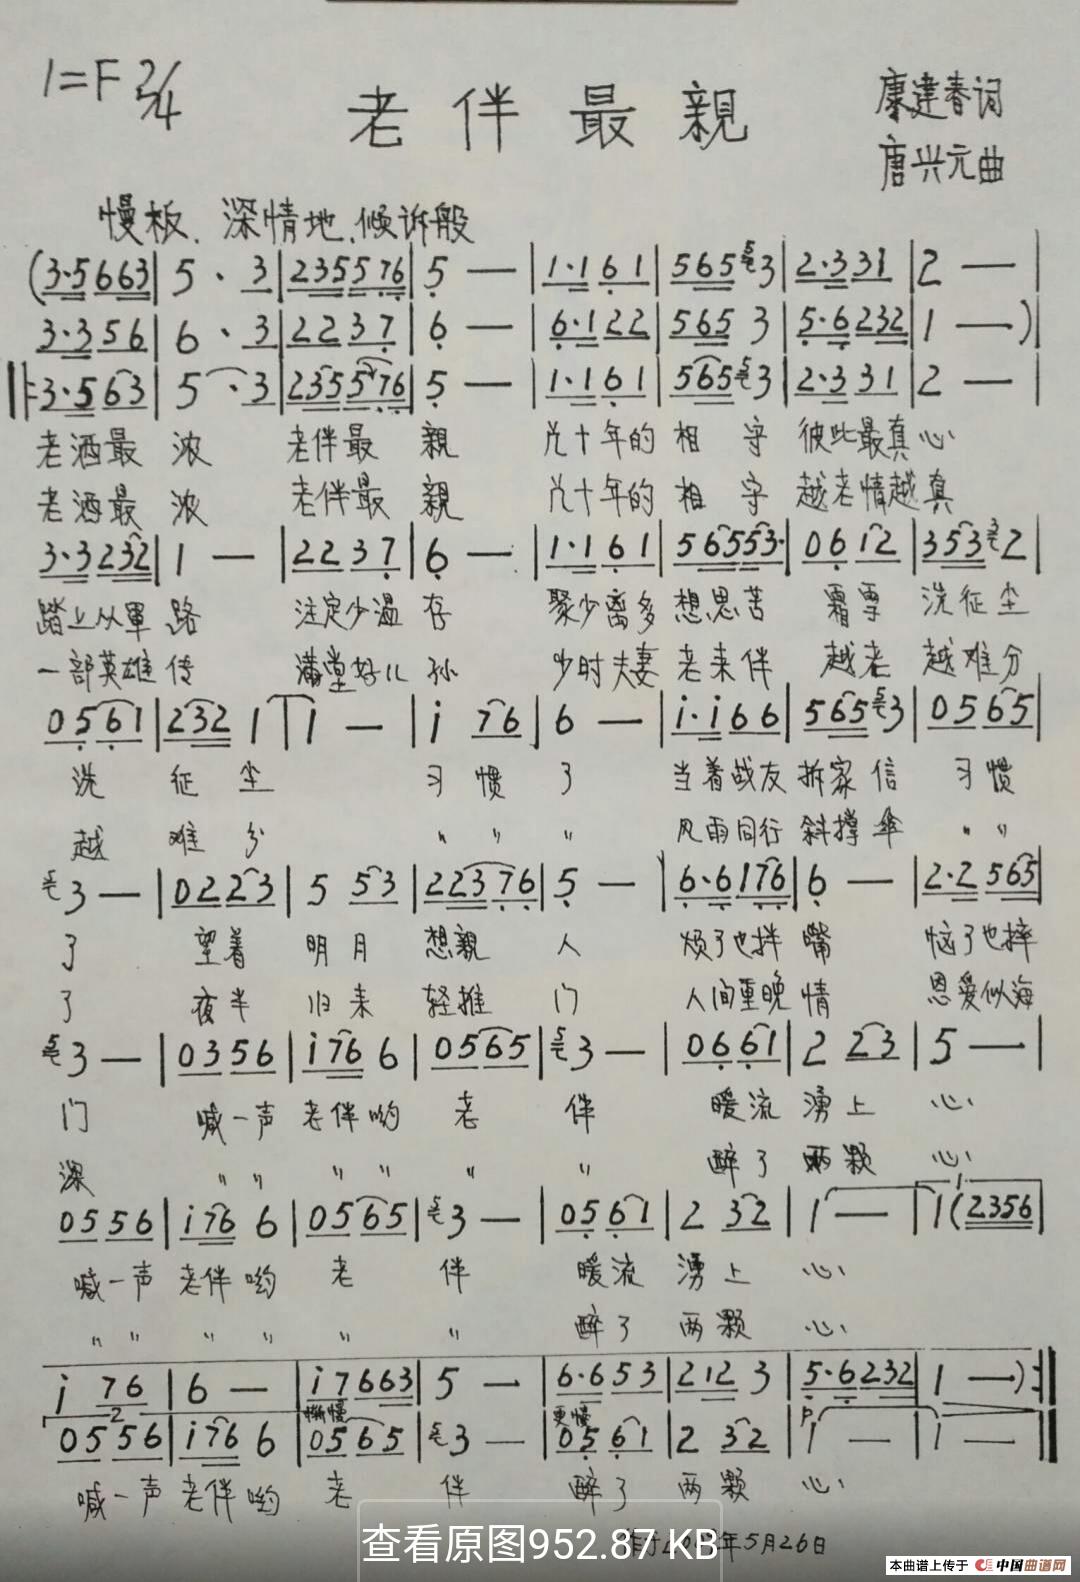 1=F 2/4
老伴最親
康建春词
唐兴元曲
慢板、深情地、倾诉般
(3·5 663 | 5 · 3 | 2355 576 | 5 — | 1·1 6 1 | 565 3 | 2·3 31 | 2 — |
3·3 56 | 6 · 3 | 22 37 | 6 — | 6·1 22 | 565 3 | 5·6 232 | 1 — ) |
‖: 3·5 63 | 5 · 3 | 235 576 | 5 — | 1·1 6 1 | 565 3 | 2·3 31 | 2 — |
老酒最 浓 老伴最 親 几十年的 相 守 彼此最真心
老酒最 浓 老伴最 親 几十年的 相 守 越老情越真
3·3 232 | 1 — | 22 37 | 6 — | 1·1 61 | 56553· | 06 12 | 353 2 |
踏上从軍 路 注定少温 存 聚少离多 想思苦 霜雪 洗征尘
一部英雄 传 满堂好儿 孙 少时夫妻 老来伴 越老 越难分
05 61 | 232 1 | 1 — | i 76 | 6 — | i·i 66 | 565 3 | 05 65 |
洗 征 尘 习 惯 了 当着战友 拆家 信 习 惯
越 难 分 〃 〃 〃 风雨同行 斜撑 伞 〃 〃
3 — | 02 23 | 5 53 | 22376 | 5 — | 6·6 176 | 6 — | 2·2 565 |
了 望着 明月 想親 人 烦了也拌 嘴 恼了也摔
了 夜半 归来 轻推 门 人间重晚 情 恩爱似海
3 — | 03 56 | i76 6 | 05 65 | 3 — | 06 61 | 2 23 | 5 — |
门 喊一声 老伴哟 老 伴 暖流 湧上 心
深 〃 〃 〃 〃 〃 〃 醉了 两颗 心
05 56 | i76 6 | 05 65 | 3 — | 05 61 | 2 32 | 1 — | 1 (2356 |
喊一声 老伴哟 老 伴 暖流 湧上 心
〃 〃 〃 〃 〃 〃 醉了 两颗 心
i 76 | 6 — | i7 663 | 5 — | 6·6 53 | 212 3 | 5·6 232 | 1 — ) :‖
2 渐慢 更慢 p
05 56 | i76 6 | 05 65 | 3 — | 05 61 | 2 32 | 1 — | 1 — ‖
喊一声 老伴哟 老 伴 醉了 两颗 心
查看原图952.87 KB
年5月26日
本曲谱上传于 中国曲谱网